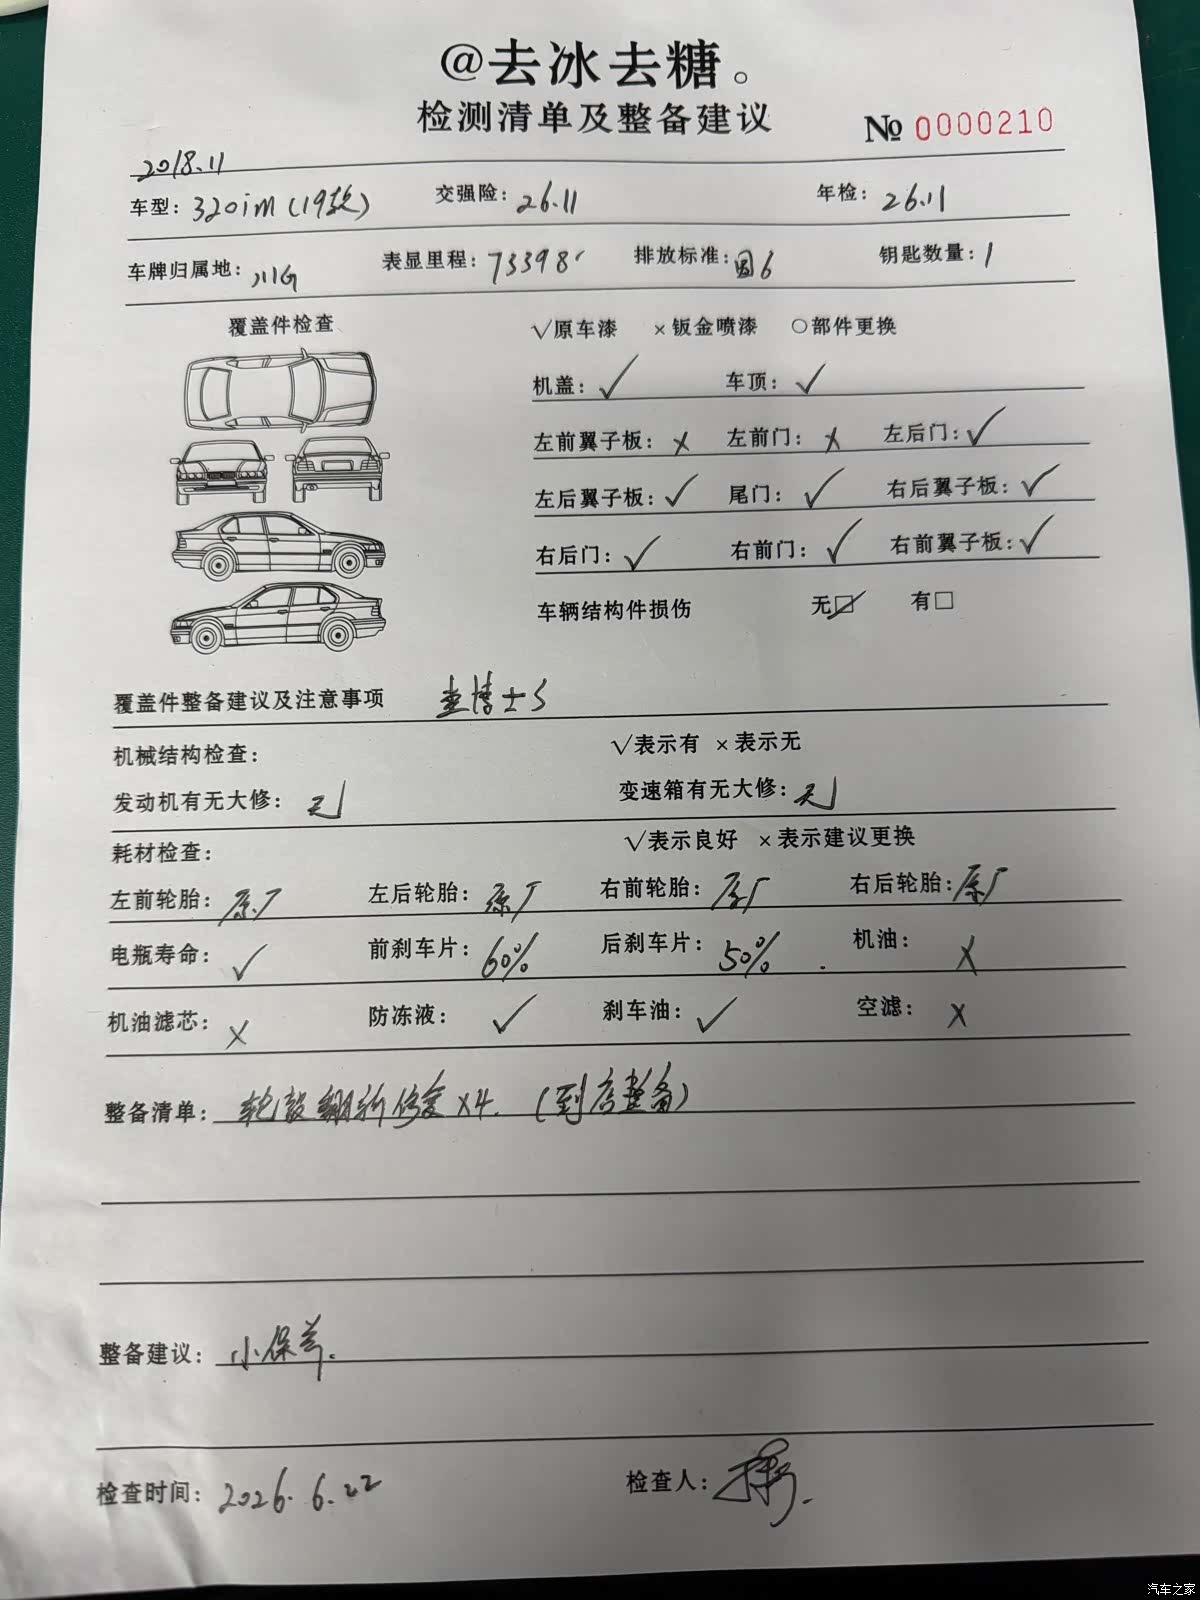 @去冰去糖。
检测清单及整备建议
№ 0000210
2018.11
车型：320iM（19款） 交强险：26.11 年检：26.11
车牌归属地：川G 表显里程：73398 排放标准：国6 钥匙数量：1
覆盖件检查 √原车漆 ×钣金喷漆 ○部件更换
机盖：✓ 车顶：✓
左前翼子板：× 左前门：× 左后门：✓
左后翼子板：✓ 尾门：✓ 右后翼子板：✓
右后门：✓ 右前门：✓ 右前翼子板：✓
车辆结构件损伤 无☑ 有□
覆盖件整备建议及注意事项 查博士S
机械结构检查： √表示有 ×表示无
发动机有无大修：无 变速箱有无大修：无
耗材检查： √表示良好 ×表示建议更换
左前轮胎：原厂 左后轮胎：原厂 右前轮胎：原厂 右后轮胎：原厂
电瓶寿命：✓ 前刹车片：60% 后刹车片：50% 机油：×
机油滤芯：× 防冻液：✓ 刹车油：✓ 空滤：×
整备清单：轮毂翻新修复x4.（到店整备）
整备建议：小保养.
检查时间：2026.6.22 检查人：
汽车之家